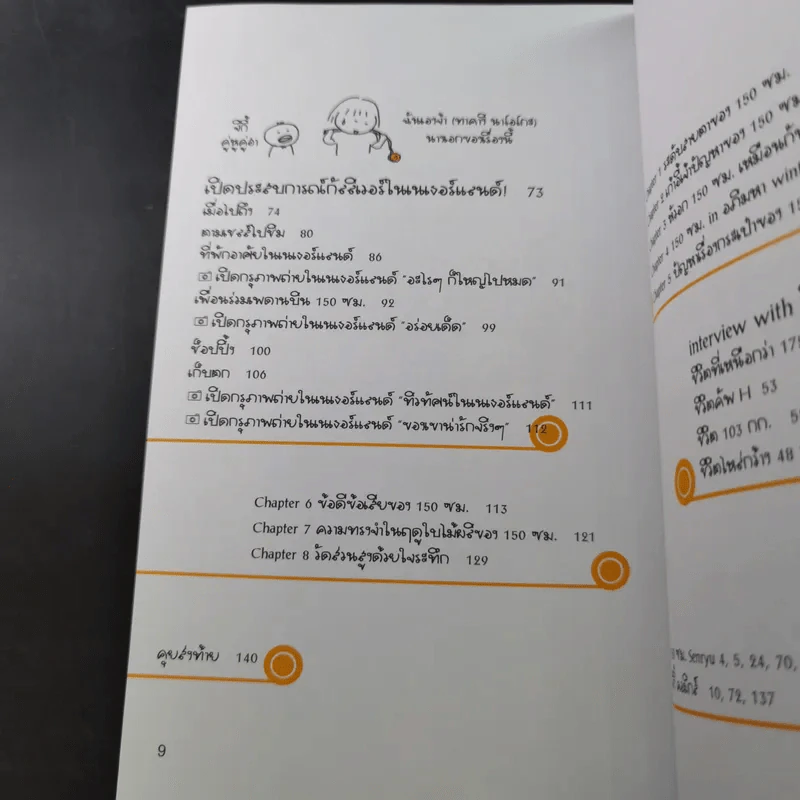 จีกี้
คู่หูคู่ฮา
ฉันเองจ้า (ทาคางิ นาโอโกะ)
นางเอกของเรื่องนี้
เปิดประสบการณ์กัลลิเวอร์ในเนเธอร์แลนด์! 73
เมื่อไปถึง 74
ตามเชสไปชิม 80
ที่พักอาศัยในเนเธอร์แลนด์ 86
เปิดกรุภาพถ่ายในเนเธอร์แลนด์ "อะไรๆ ก็ใหญ่ไปหมด" 91
เพื่อนร่วมเพดานบิน 150 ซม. 92
เปิดกรุภาพถ่ายในเนเธอร์แลนด์ "อร่อยเด็ด" 99
ช็อปปิ้ง 100
เก็บตก 106
เปิดกรุภาพถ่ายในเนเธอร์แลนด์ "ทิวทัศน์ในเนเธอร์แลนด์" 111
เปิดกรุภาพถ่ายในเนเธอร์แลนด์ "ของขาน่ารักจริงๆ" 112
Chapter 6 ข้อดีข้อเสียของ 150 ซม. 113
Chapter 7 ความทรงจำในฤดูใบไม้ผลิของ 150 ซม. 121
Chapter 8 วัดส่วนสูงด้วยใจระทึก 129
คุยส่งท้าย 140
9
Chapter 1 ระดับสายตาของ 150 ซม.
Chapter 2 เก้าอี้เจ้าปัญหาของ 150 ซม.
Chapter 3 หัวอก 150 ซม. เหมือนกัน
Chapter 4 150 ซม. in อภิมหา
Chapter 5 ปัญหาเรื่องกระเป๋าของ
interview with
ชีวิตที่เหนือกว่า
ชีวิตคัพ H 53
ชีวิต 103 กก.
ชีวิตไหล่กว้าง 48
ซม. Senryu 4, 5, 24, 70,
10, 72, 137